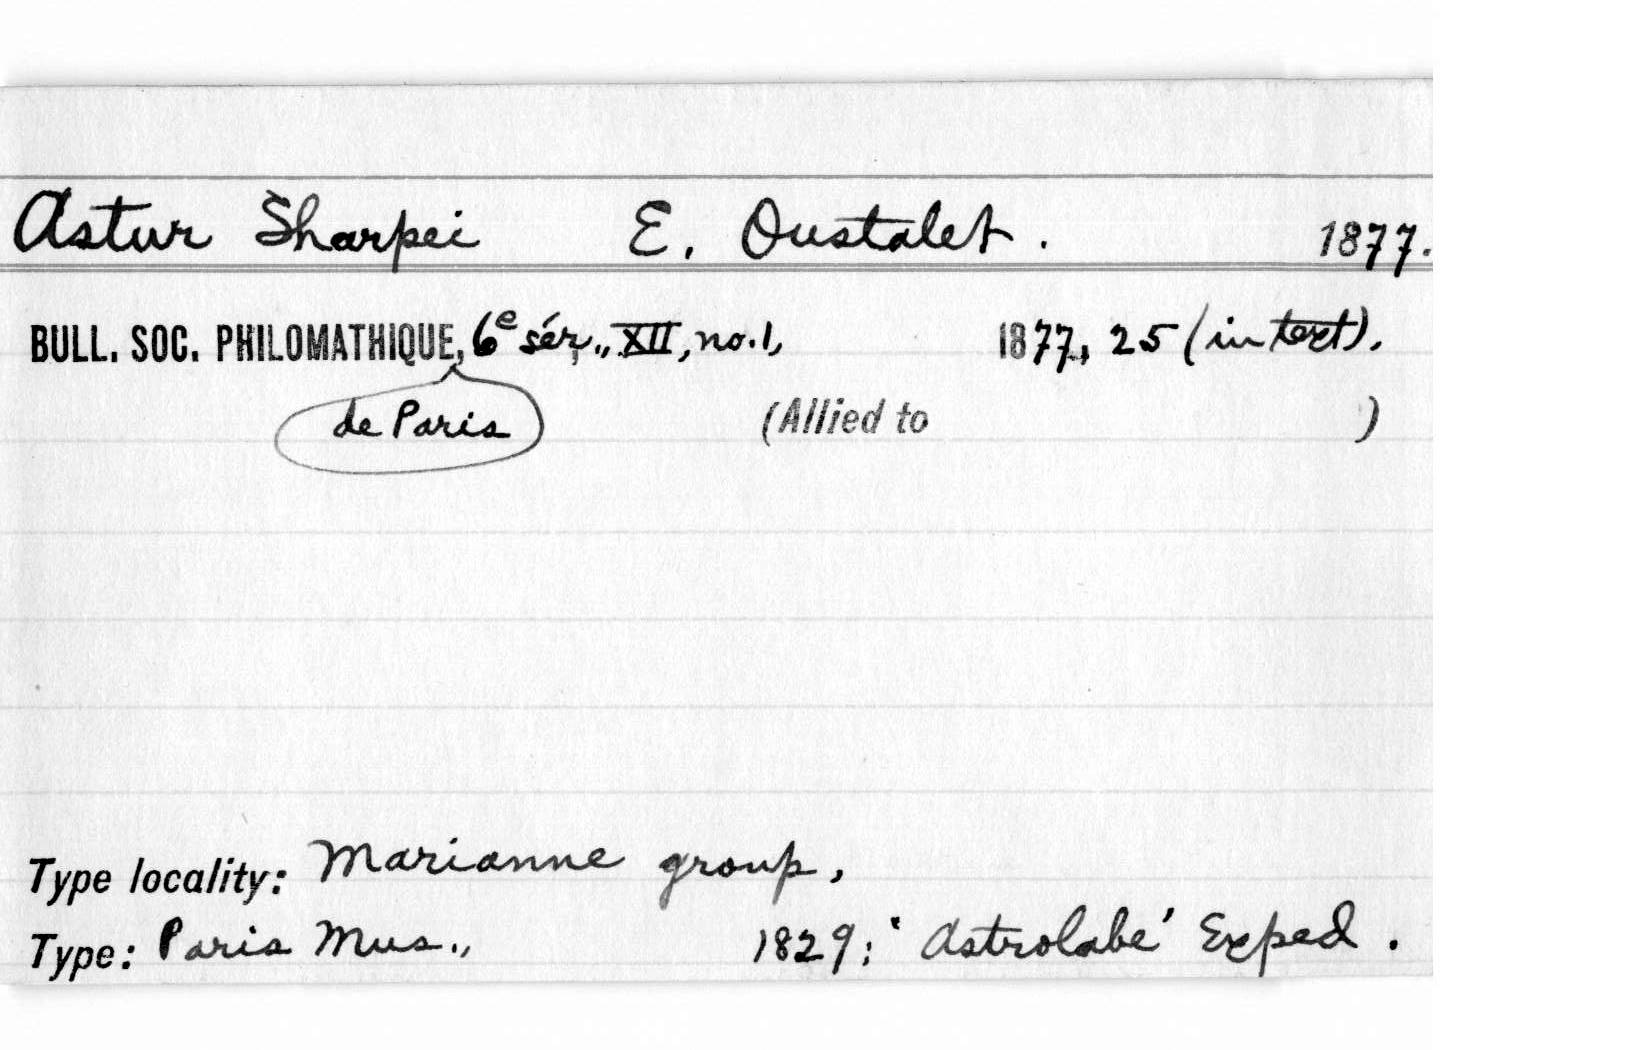 Astur Sharpei E. Oustalet. 1877.
BULL. SOC. PHILOMATHIQUE, 6e sér., XII, no. 1, 1877, 25 (in text).
de Paris (Allied to )
Type locality: Marianne group,
Type: Paris Mus., 1829; 'Astrolabe' Exped.